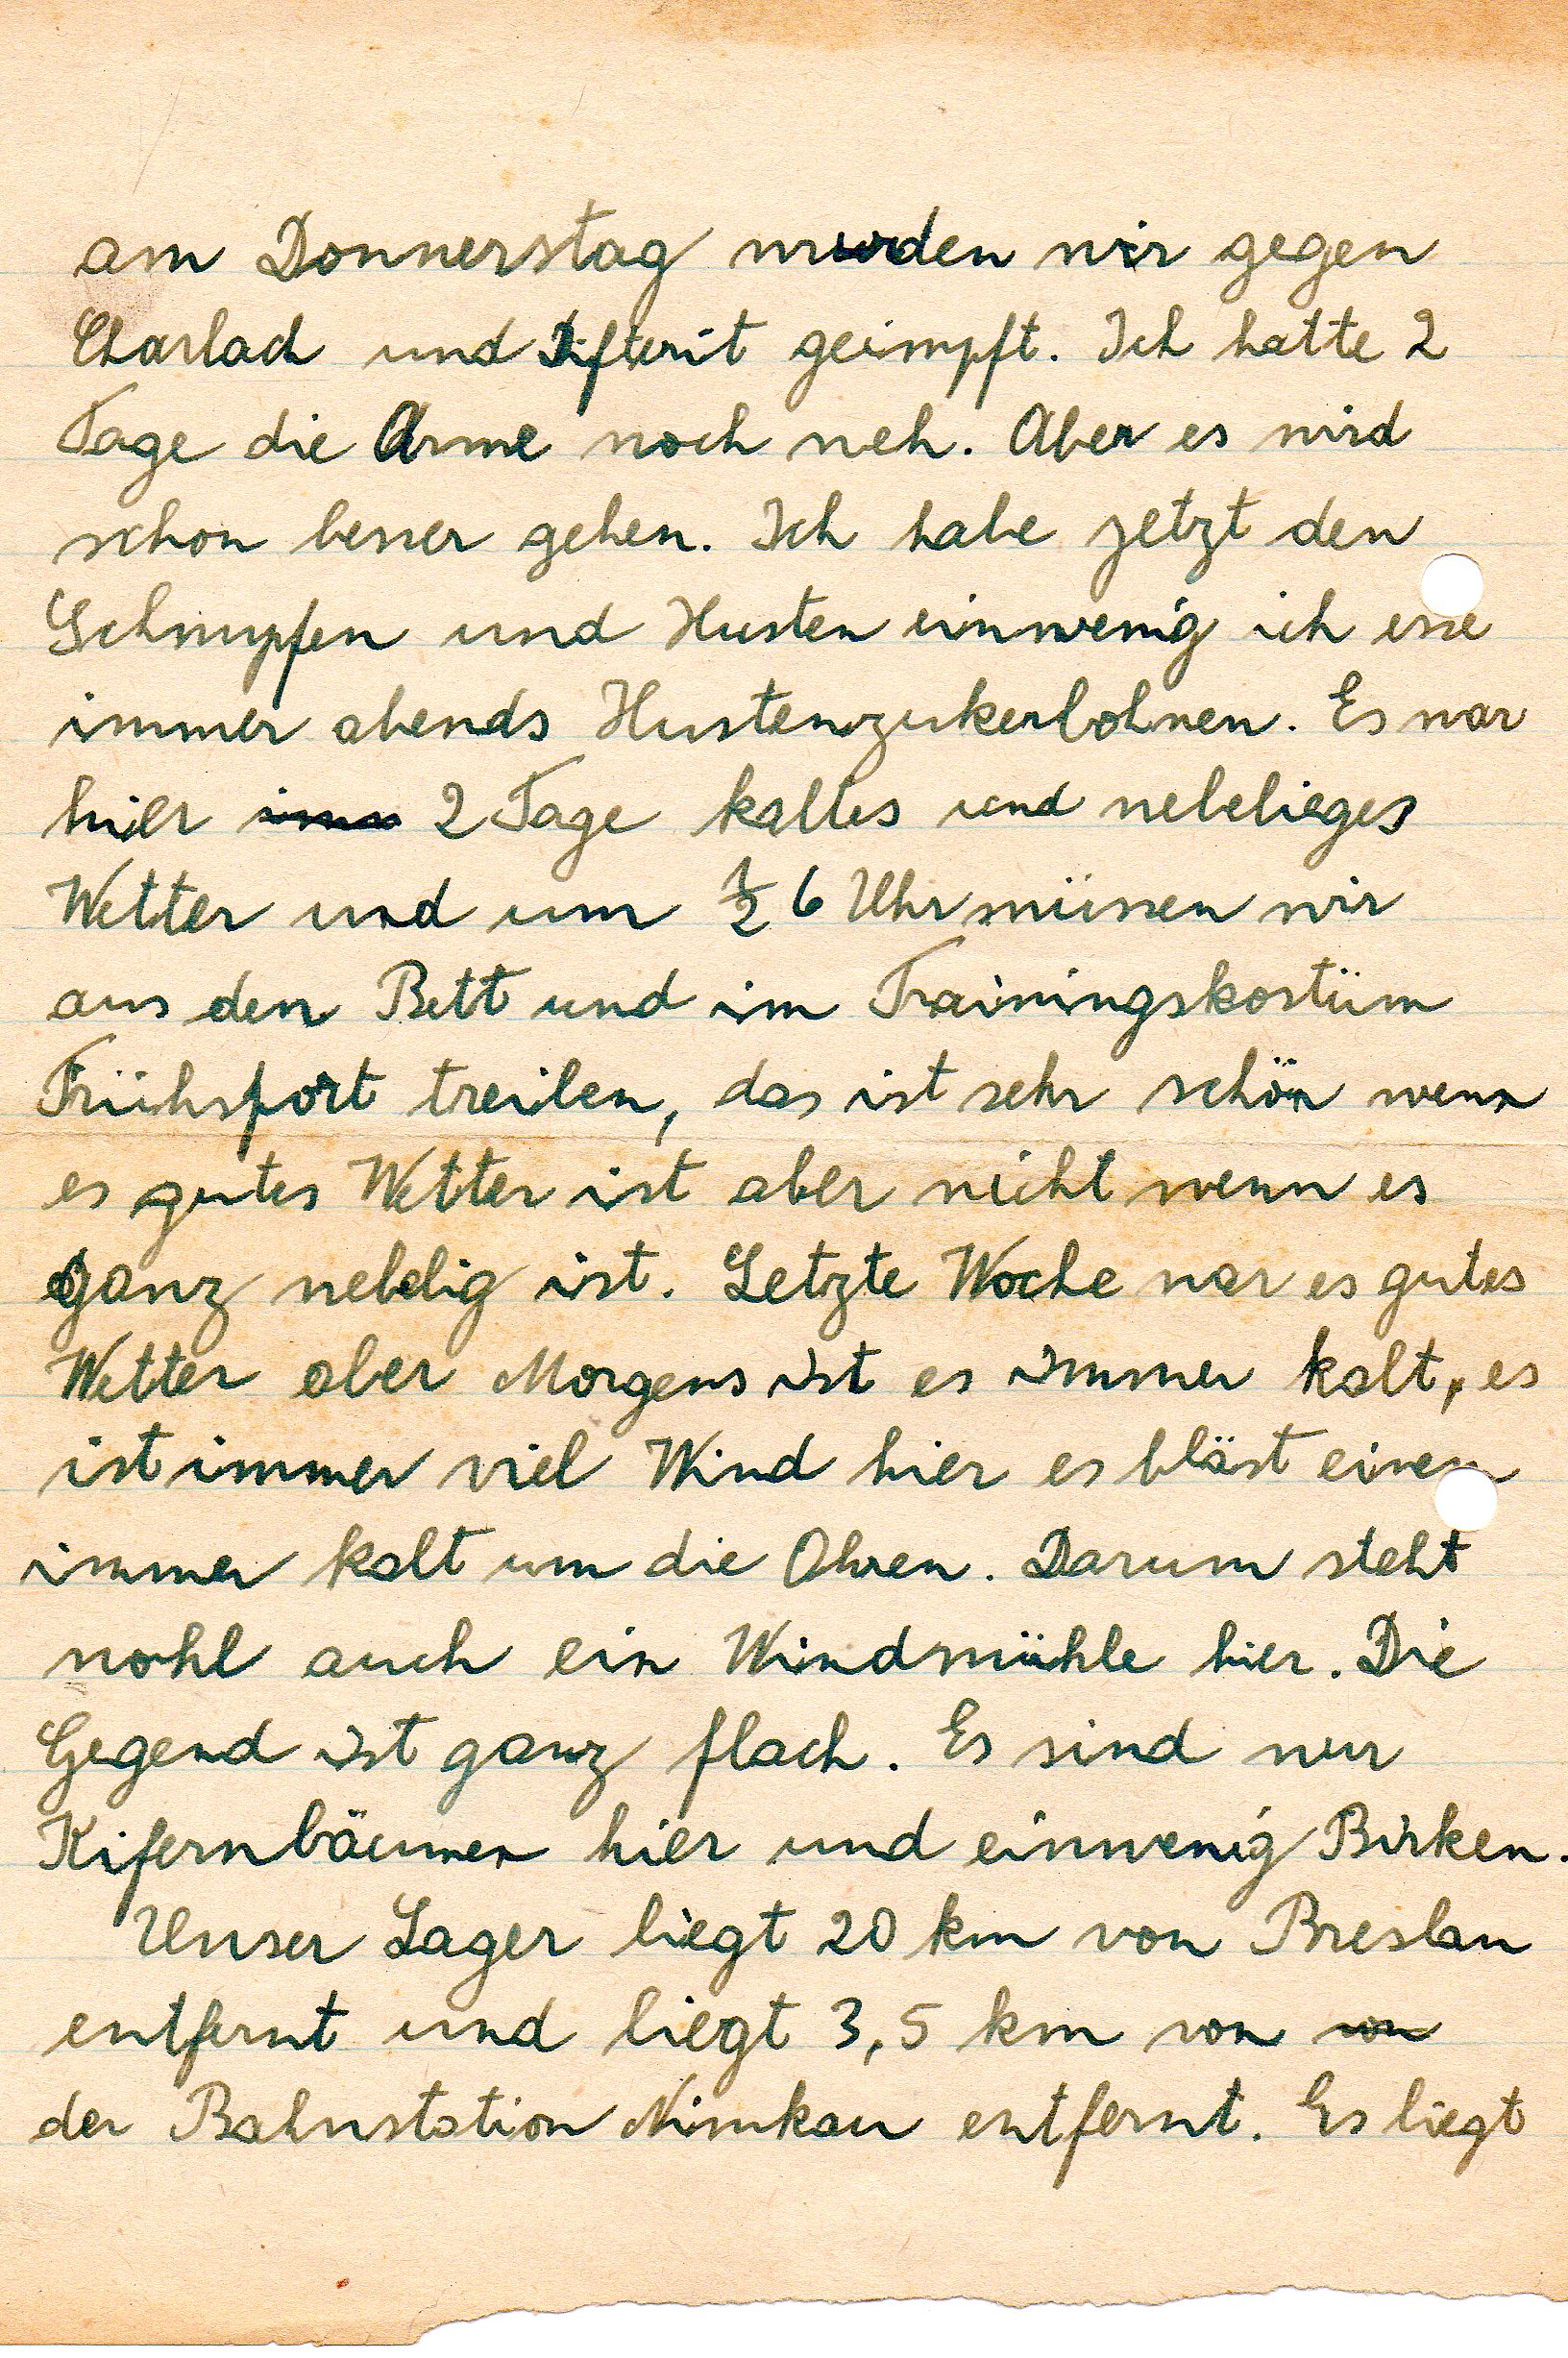 am Donnerstag wurden wir gegen
Charlach und Difterit geimpft. Ich hatte 2
Tage die Arme noch weh. Aber es wird
schon besser gehen. Ich habe jetzt den
Schnupfen und Husten einwenig ich esse
immer abends Hustenzukerbohnen. Es war
hier imm 2 Tage kaltes und nebelieges
Wetter und um ½ 6 Uhr müssen wir
aus den Bett und im Trainingskostüm
Frühsport treiben, das ist sehr schön wenn
es gutes Wetter ist aber nicht wenn es
ganz neblig ist. Letzte Woche war es gutes
Wetter aber Morgens ist es immer kalt, es
ist immer viel Wind hier es bläst einem
immer kalt um die Ohren. Darum steht
wohl auch ein Windmühle hier. Die
Gegend ist ganz flach. Es sind nur
Kifernbäumen hier und einwenig Birken.
Unser Lager liegt 20 km von Breslau
entfernt und liegt 3,5 km von von
der Bahnstation Nimkau entfernt. Es liegt